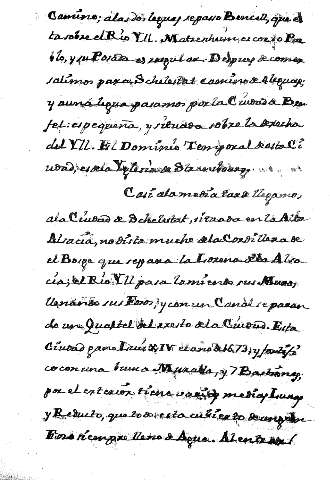 Camino; a las dos leguas se paso Bencelt, que es
ta sobre el Rio Yll. Matzenhaim es corto Pue
blo, y su Posada es regular. Despues de comer
salimos para Schelestat camino de 4 leguas;
y a una legua pasamos por la Ciudad de Ben
felt: es pequeña, y situada sobre la derecha
del Yll. El Dominio Temporal de esta Ciu
dad, es de la Yglesia de Strasbourg.
Casi a la media tarde llegamos,
a la Ciudad de Schelestat, situada en la Alta
Alsacia, no dista mucho de la Cordillera de
el Bosge que separa la Lorena de la Alsa
cia; el Rio Yll pasa lamiendo sus Muros,
llenando sus Fosos; y con un Canal se paran
do un Quartel del resto de la Ciudad. Esta
Ciudad gano Luis XIV el año de 1673, y fortifi
co con una buena Muralla, y 7 Bastiones,
por el exterior tiene varias medias Lunas
y Reducto, que todo esta cubierto de un gran
Foso siempre lleno de Agua. Al entrar